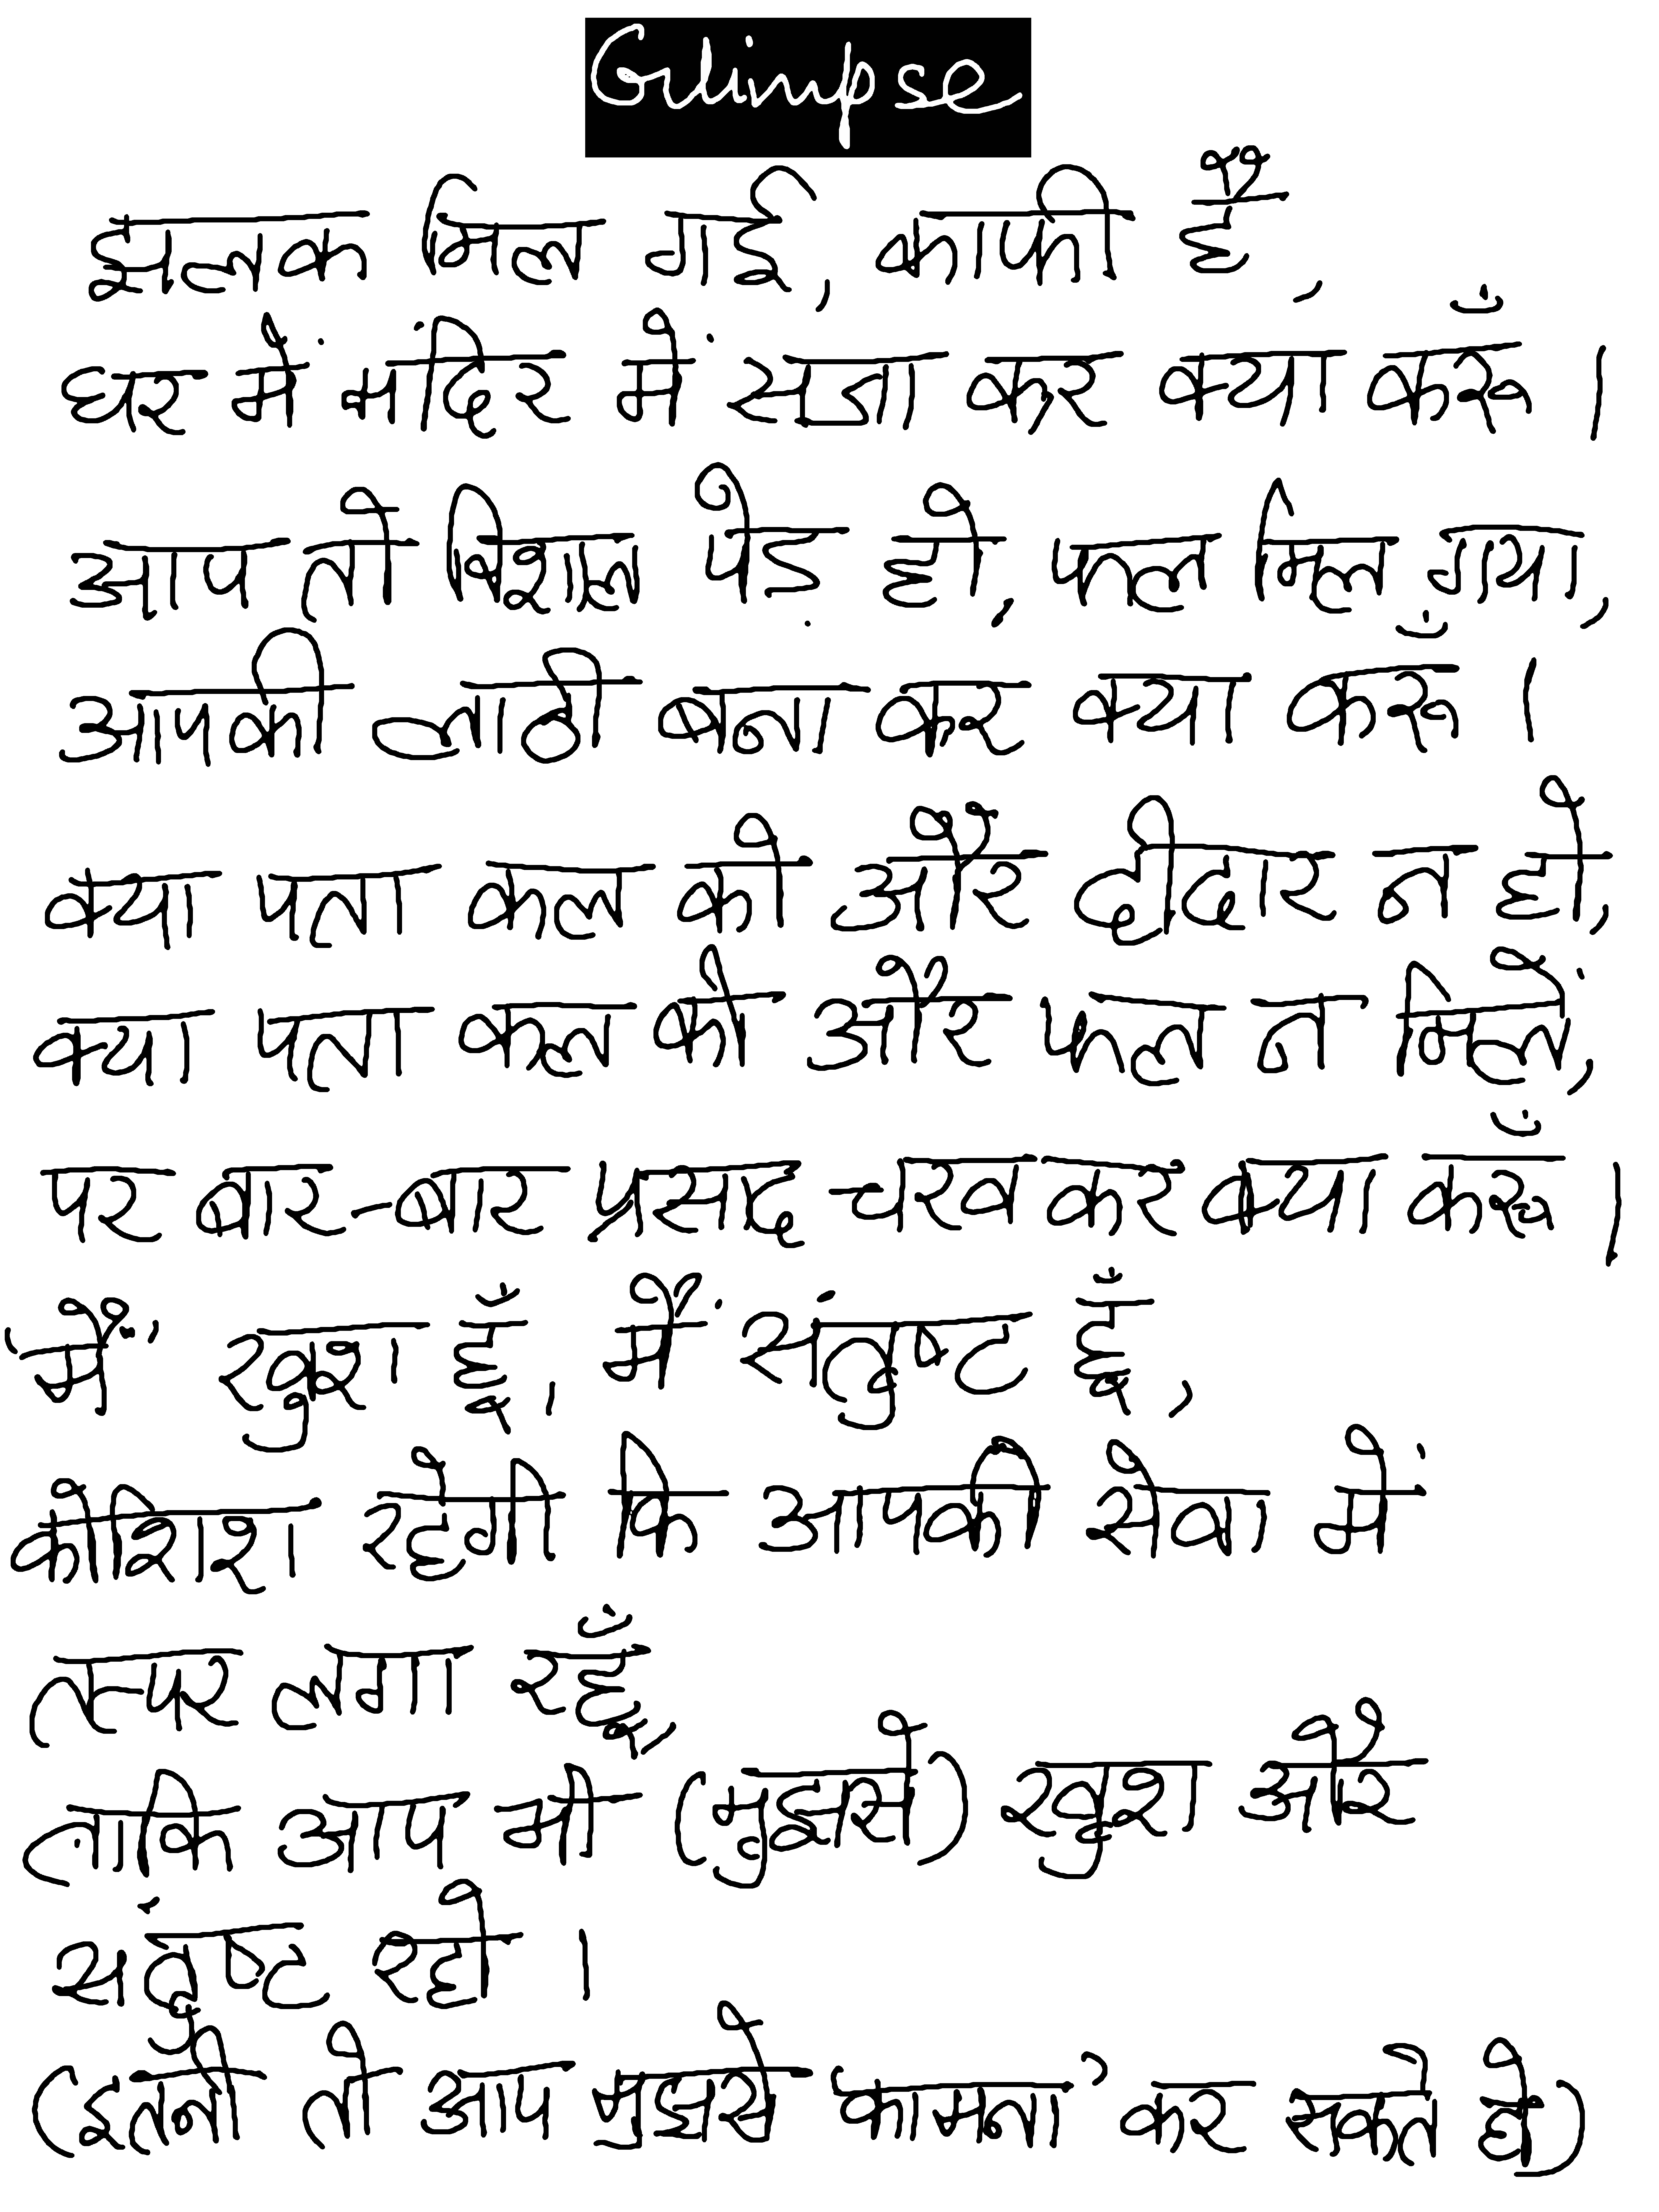 Glimpse
झलक मिल गई, काफी है,
घर में मंदिर में सजा कर क्या करूँ ।
आप तो विशाल पेड़ हो, फल मिल गया,
आपकी लाठी बना कर क्या करूँ ।
क्या पता कल को और दीदार न हो,
क्या पता कल को और फल न मिलें,
पर बार-बार प्रसाद चख कर क्या करूँ ।
मैं खुश हूँ, मैं संतुष्ट हूँ,
कोशिश रहेगी कि आपकी सेवा में
तत्पर लगा रहूँ,
ताकि आप भी (मुझसे) खुश और
संतुष्ट रहो ।
(इतनी तो आप मुझसे 'कामना' कर सकते हो)